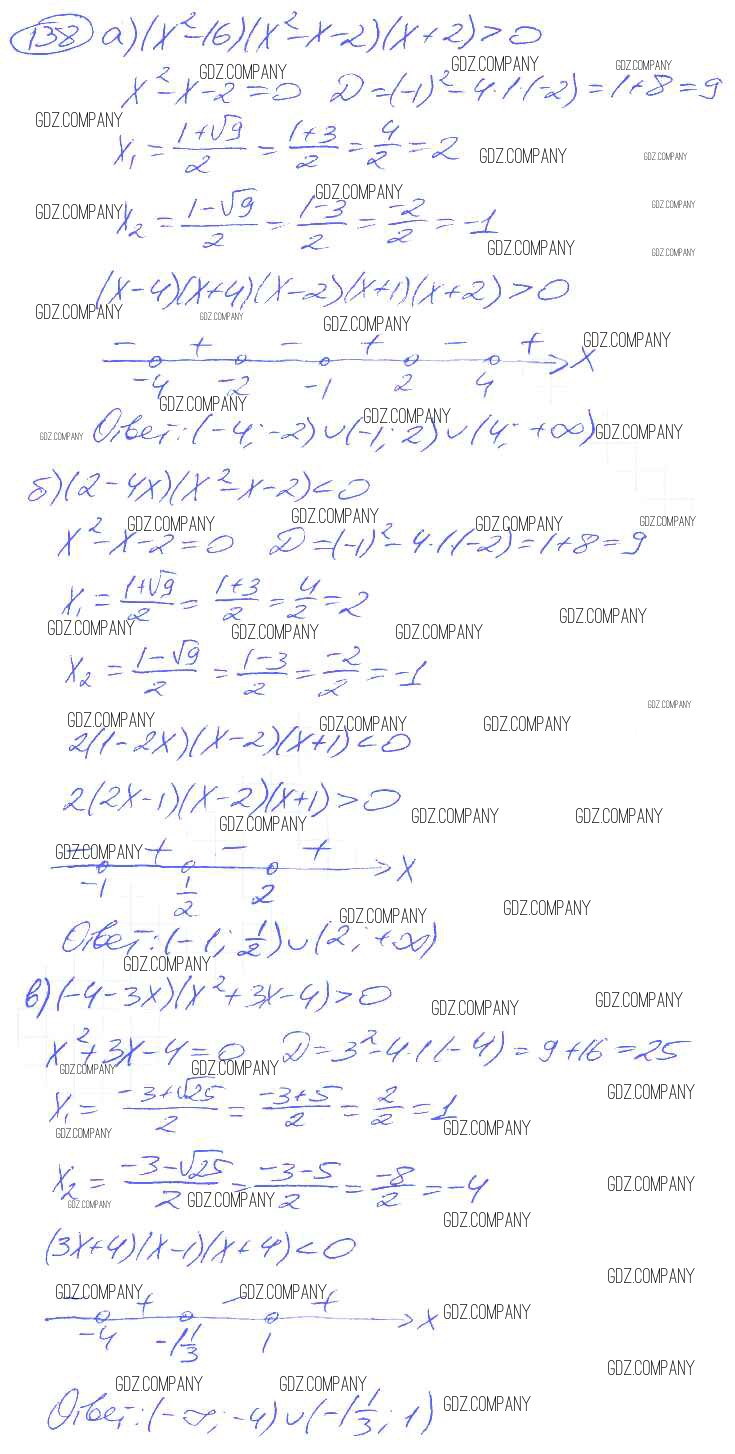 138 а) (x²-16)(x²-x-2)(x+2)>0
x²-x-2=0 D=(-1)²-4·1·(-2)=1+8=9
x₁ = (1+√9)/2 = (1+3)/2 = 4/2 = 2
x₂ = (1-√9)/2 = (1-3)/2 = -2/2 = -1
(x-4)(x+4)(x-2)(x+1)(x+2)>0
- + - + - +
-4 -2 -1 2 4 x
Ответ: (-4; -2)∪(-1; 2)∪(4; +∞)
б) (2-4x)(x²-x-2)<0
x²-x-2=0 D=(-1)²-4·1·(-2)=1+8=9
x₁ = (1+√9)/2 = (1+3)/2 = 4/2 = 2
x₂ = (1-√9)/2 = (1-3)/2 = -2/2 = -1
2(1-2x)(x-2)(x+1)<0
2(2x-1)(x-2)(x+1)>0
- + - +
-1 1/2 2 x
Ответ: (-1; 1/2)∪(2; +∞)
в) (-4-3x)(x²+3x-4)>0
x²+3x-4=0 D=3²-4·1·(-4)=9+16=25
x₁ = (-3+√25)/2 = (-3+5)/2 = 2/2 = 1
x₂ = (-3-√25)/2 = (-3-5)/2 = -8/2 = -4
(3x+4)(x-1)(x+4)<0
- + - +
-4 -1 1/3 1 x
Ответ: (-∞; -4)∪(-1 1/3; 1)
GDZ.COMPANY